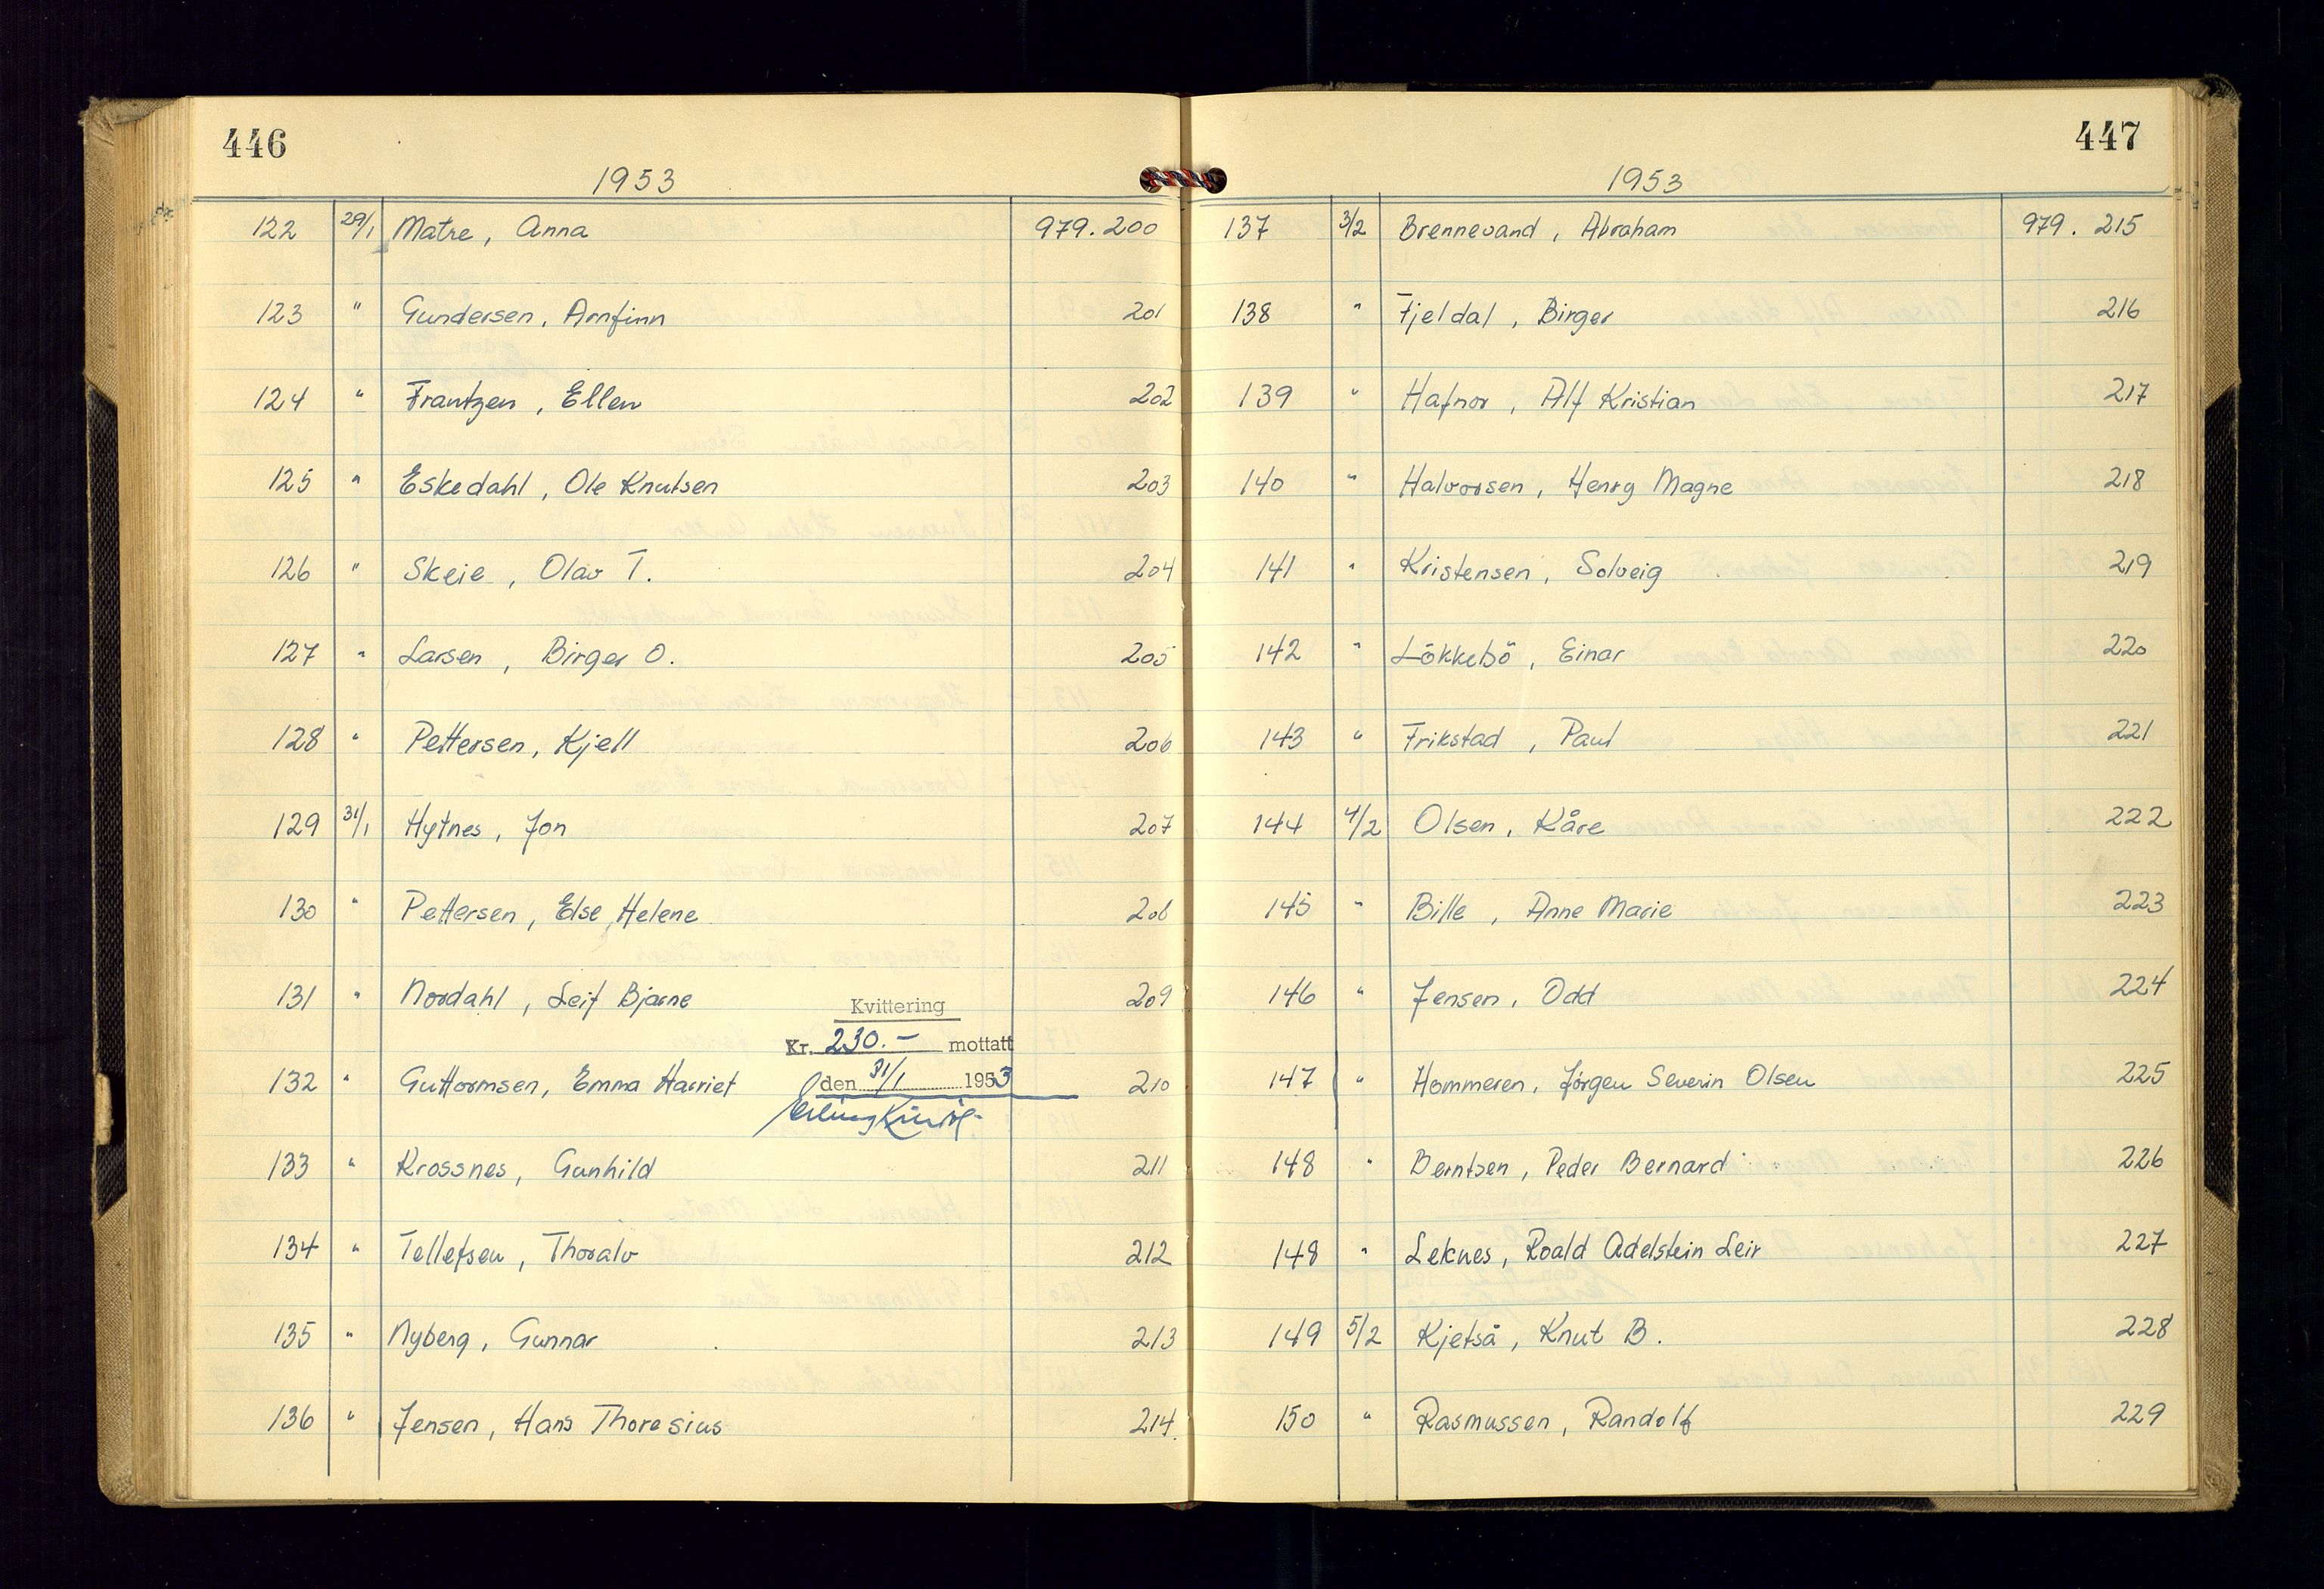 446
1953
122 29/1 Matre, Anna 979.200
123 " Gundersen, Arnfinn 201
124 " Frantzen, Ellen 202
125 " Eskedahl, Ole Knutsen 203
126 " Skeie, Olav T. 204
127 " Larsen, Birger O. 205
128 " Pettersen, Kjell 206
129 31/1 Hytnes, Jon 207
130 " Pettersen, Else Helene 208
131 " Nordahl, Leif Bjarne 209
Kvittering
Kr. 230.- mottatt
132 " Guttormsen, Emma Harriet 210
den 31/1 1953
133 " Krossnes, Gunhild 211
134 " Tellefsen, Thoralv 212
135 " Nyberg, Gunnar 213
136 " Jensen, Hans Thoresius 214.
447
1953
137 3/2 Brennevand, Abraham 979. 215
138 " Fjeldal, Birger 216
139 " Hafnor, Alf Kristian 217
140 " Halvorsen, Henry Magne 218
141 " Kristensen, Solveig 219
142 " Lökkebö, Einar 220
143 " Frikstad, Paul 221
144 4/2 Olsen, Kåre 222
145 " Bille, Anne Marie 223
146 " Jensen, Odd 224
147 " Hommeren, Jörgen Severin Olsen 225
148 " Berntsen, Peder Bernard 226
148 " Leknes, Roald Adelstein Leir 227
149 5/2 Kjetså, Knut B. 228
150 " Rasmussen, Randolf 229